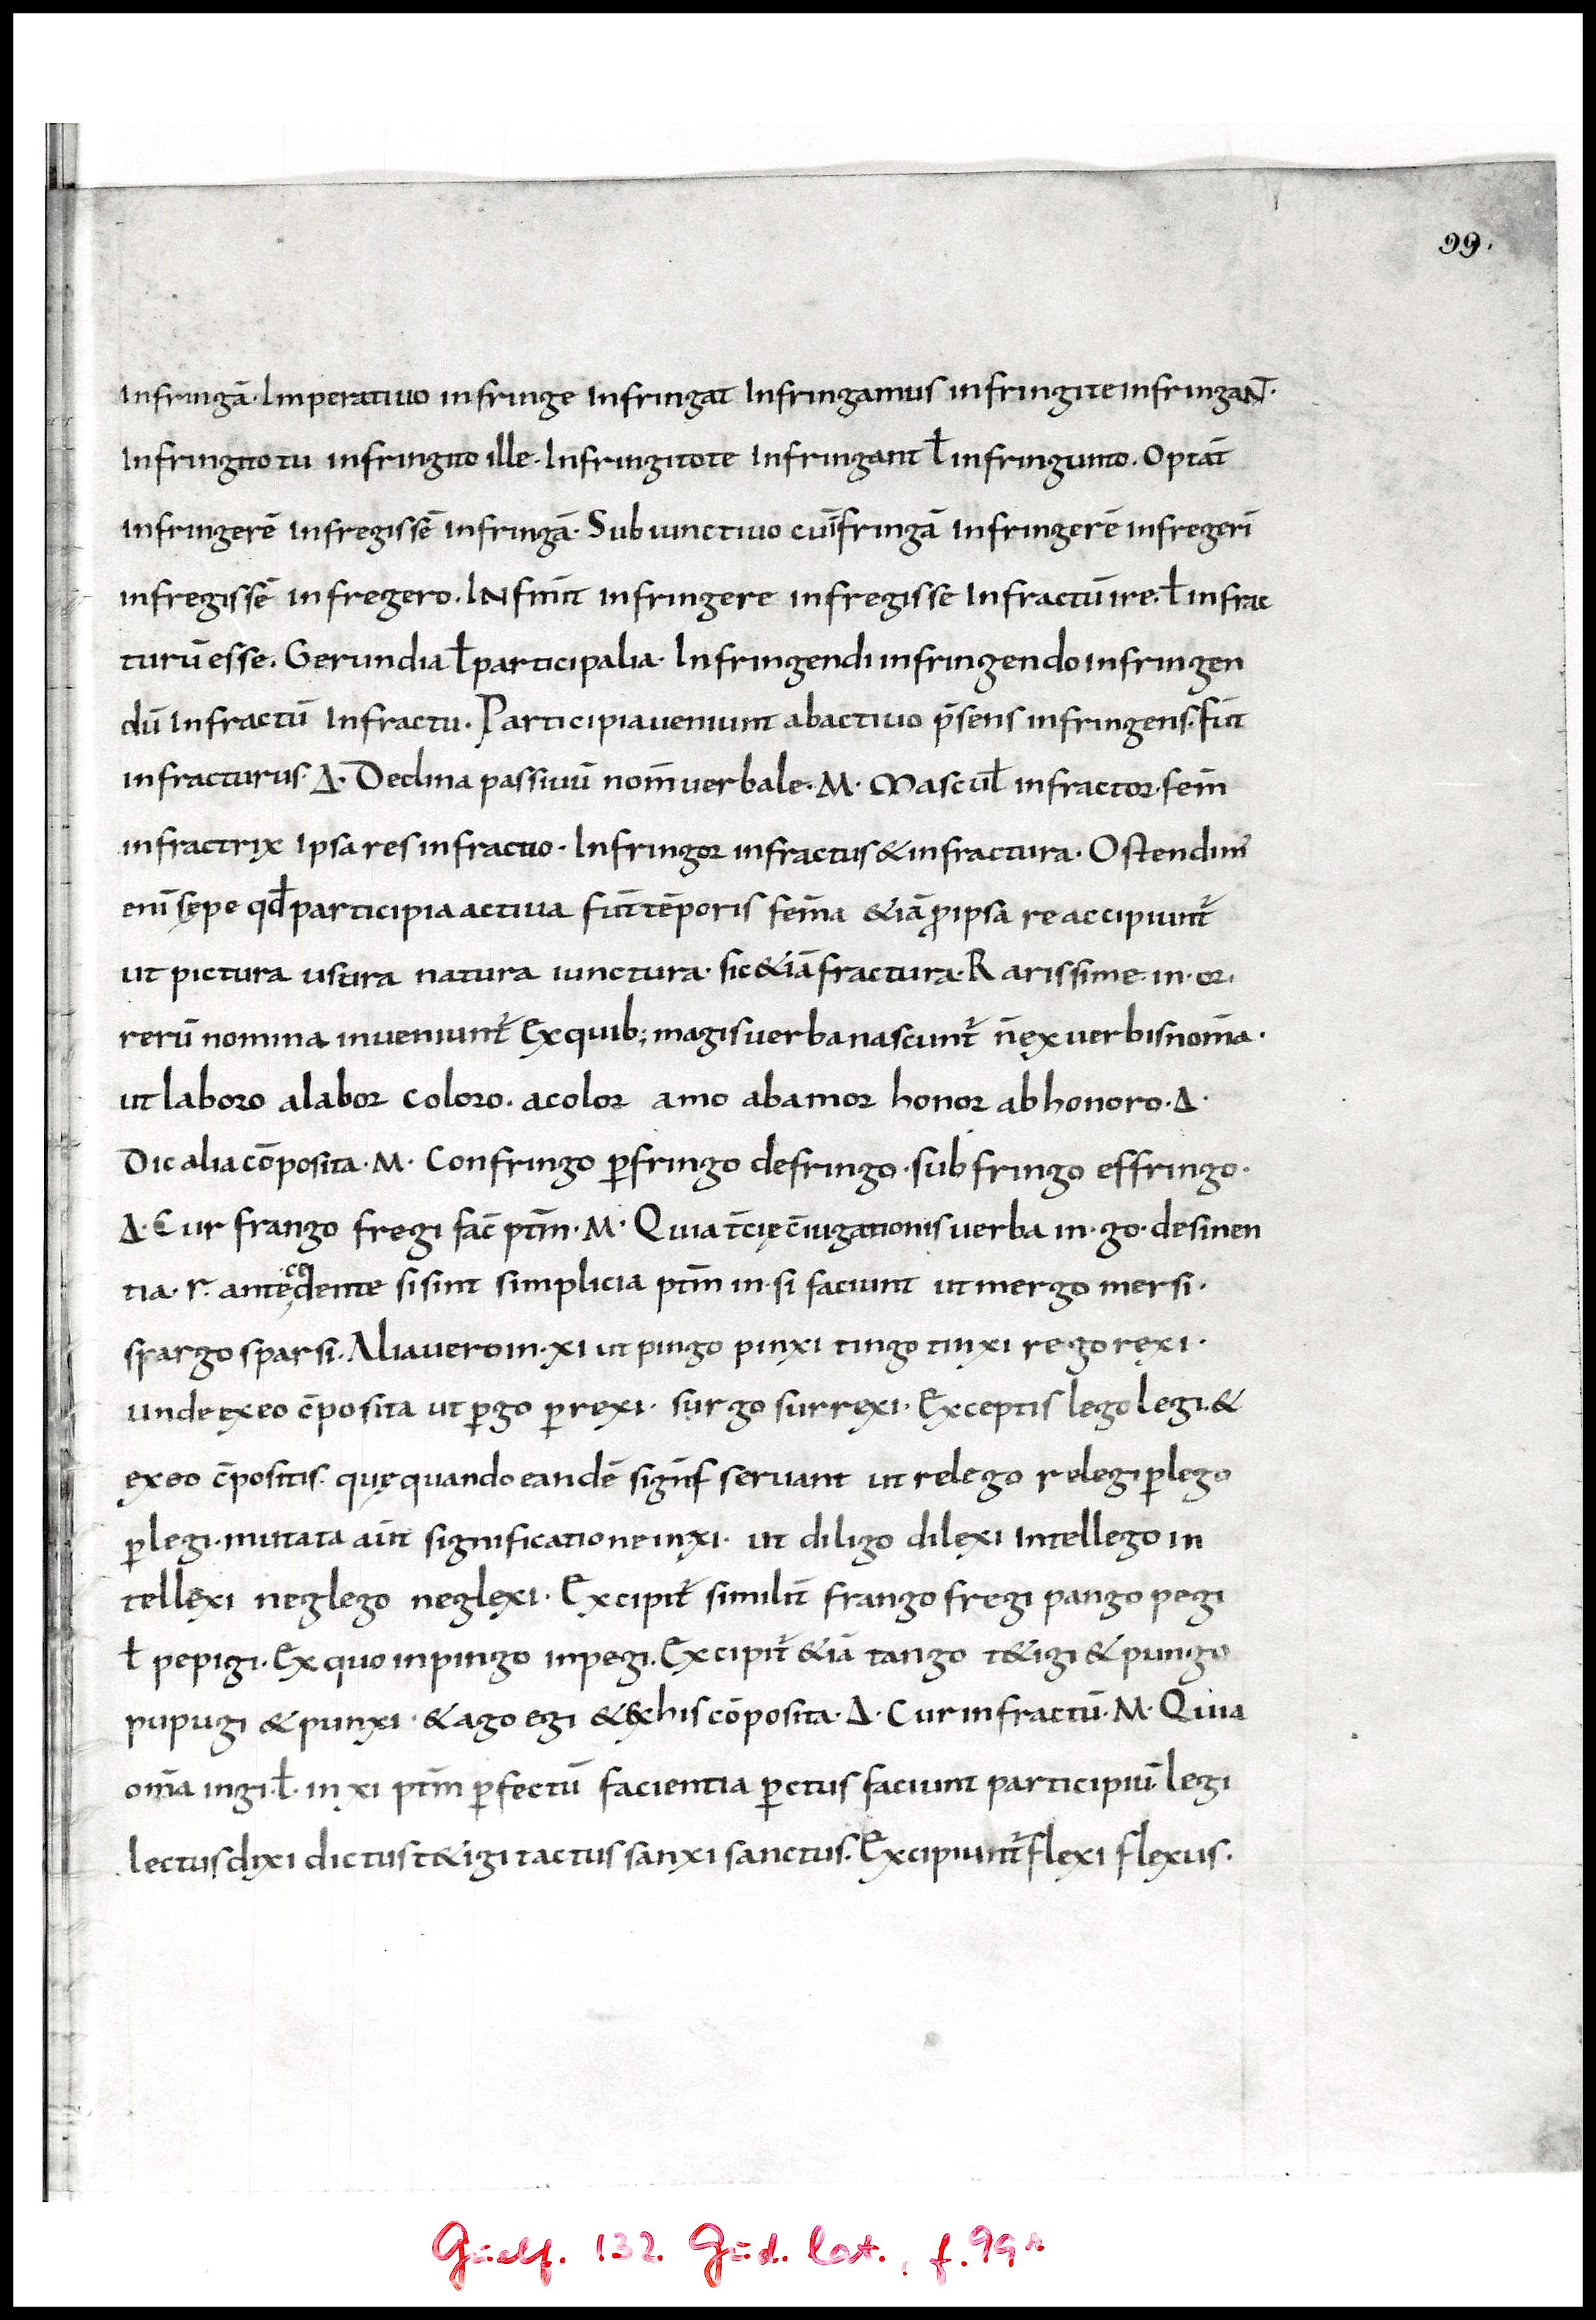 99.
Infringā. Imperatiuo infringe Infringat Infringamus infringite infringaNT.
Infringito tu infringito ille. Infringitote Infringant ł infringunto. Optāt
infringerē infregissē infringā. Subiunctiuo cuīfringā infringerē infregerī
infregissē infregero. INfinit̄ infringere infregisse Infractū ire. ł infrac
turū esse. Gerundia ł participalia. Infringendi infringendo infringen
dū Infractū Infractu. Participia ueniunt ab actiuo p̄sens infringens. fut̄
infracturus. Δ. Declina passiuū nom̄ uerbale. M. Mascuł infractor. fem̄
infractrix Ipsa res infractio. Infringor infractus & infractura. Ostendim᾽
enī sępe qđ participia actiua fut̄ tēporis fem̄a &iā ꝓ ipsa re accipiunt᷑
ut pictura usura natura iunctura. sic &iā fractura. Rarissime. in. or.
rerū nomina inueniunt᷑ Ex quib; magis uerba nascunt᷑ n̄ ex uerbis nom̄a.
ut laboro a labor coloro. a color amo ab amor honor ab honoro. Δ.
Dic alia cōposita. M. Confringo ꝑfringo defringo. subfringo effringo.
Δ. Cur frango fregi fac̄ ptm̄. M. Quia t̄cię c̄iugationis uerba in. go. desinen
tia. r. antęcędente si sint simplicia ptm̄ in. si faciunt ut mergo mersi.
spargo sparsi. Alia uero in. xi ut pingo pinxi tingo tinxi rego rexi.
unde ex eo c̄posita ut ꝑgo ꝑrexi. surgo surrexi. Exceptis lego legi. &
ex eo c̄positis. quę quando eandē signif̄ seruant ut relego relegi ꝑlego
ꝑlegi. mutata aūt significatione in. xi. ut diligo dilexi Intellego in
tellexi neglego neglexi. Excipit᷑ similit̄ frango fregi pango pegi
ł pepigi. Ex quo inpingo inpegi. Excipit᷑ &iā tango t&igi & pungo
pupugi & punxi. & ago egi & ex his cōposita. Δ. Cur infractū. M. Quia
om̄a in gi. ł. in xi ptm̄ ꝑfectū facientia ꝑ ctus faciunt participiū. legi
lectus dixi dictus t&igi tactus sanxi sanctus. Excipiunt᷑ flexi flexus.
Guelf. 132. Gud. lat., f. 99r